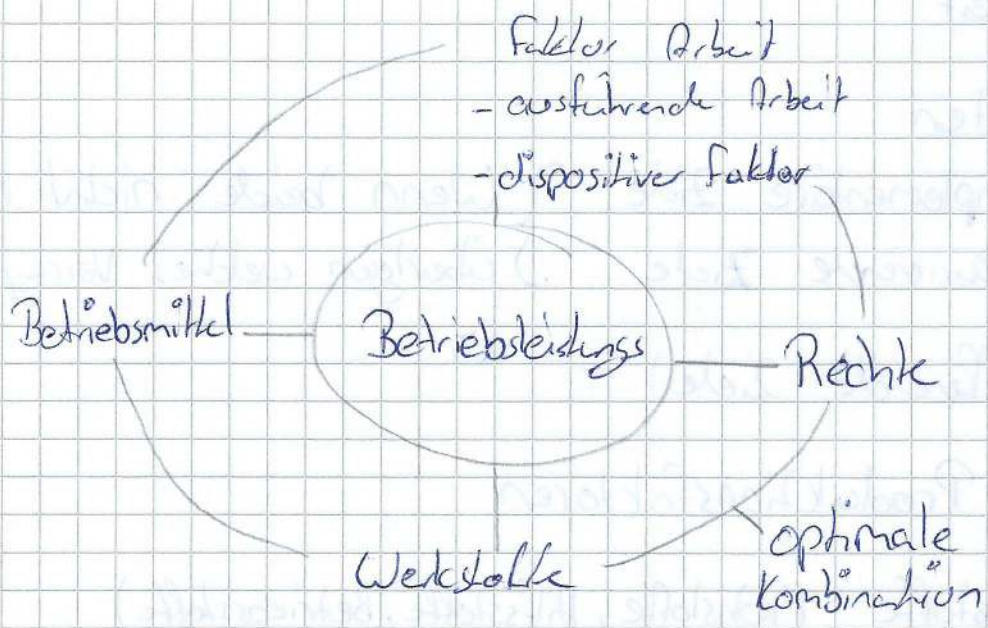 Faktor Arbeit
- ausführende Arbeit
- dispositiver Faktor
Betriebsmittel
Betriebsleistungs
Rechte
Werkstoffe
optimale
Kombination